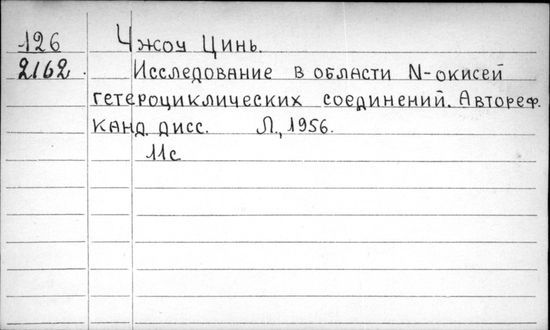 126 Чжоу Цинь.
2162. Исследование в области N-окисей
гетероциклических соединений. Автореф.
канд. дисс. Л., 1956.
11с